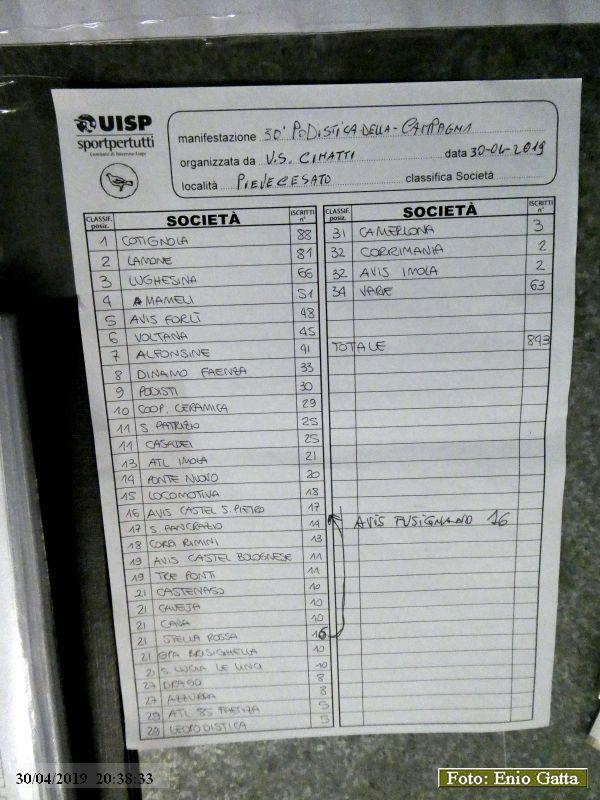 UISP
sportpertutti
manifestazione 30ª PODISTICA DELLA CAMPAGNA
organizzata da V.S. CIMATTI data 30-04-2019
località PIEVECESATO classifica Società
CLASSIF. posiz. SOCIETÀ ISCRITTI n°
1 COTIGNOLA 88
2 LAMONE 81
3 LUGHESINA 66
4 MAMELI 51
5 AVIS FORLÌ 48
6 VOLTANA 45
7 ALFONSINE 41
8 DINAMO FAENZA 33
9 PODISTI 30
10 COOP. CERAMICA 29
11 S. PATRIZIO 25
11 CASADEI 25
13 ATL IMOLA 21
14 PONTE NUOVO 20
15 LOCOMOTIVA 18
16 AVIS CASTEL S. PIETRO 17
17 S. PANCRAZIO 14
18 CORA RIMINI 13
19 AVIS CASTEL BOLOGNESE 11
19 TRE PONTI 11
21 CASTENASO 10
21 CAVEJA 10
21 CAVA 10
21 STELLA ROSSA 16
21 GPA BRISIGHELLA 10
21 S. LUCIA LE UNCI 10
27 DRAGO 8
27 AZZURRA 8
29 ATL 85 FAENZA 5
29 LEOPODISTICA 5
CLASSIF. posiz. SOCIETÀ ISCRITTI n°
31 CAMERLONA 3
32 CORRIMANIA 2
32 AVIS IMOLA 2
34 VARIE 63
TOTALE 893
AVIS FUSIGNANO 16
30/04/2019 20:38:33
Foto: Enio Gatta